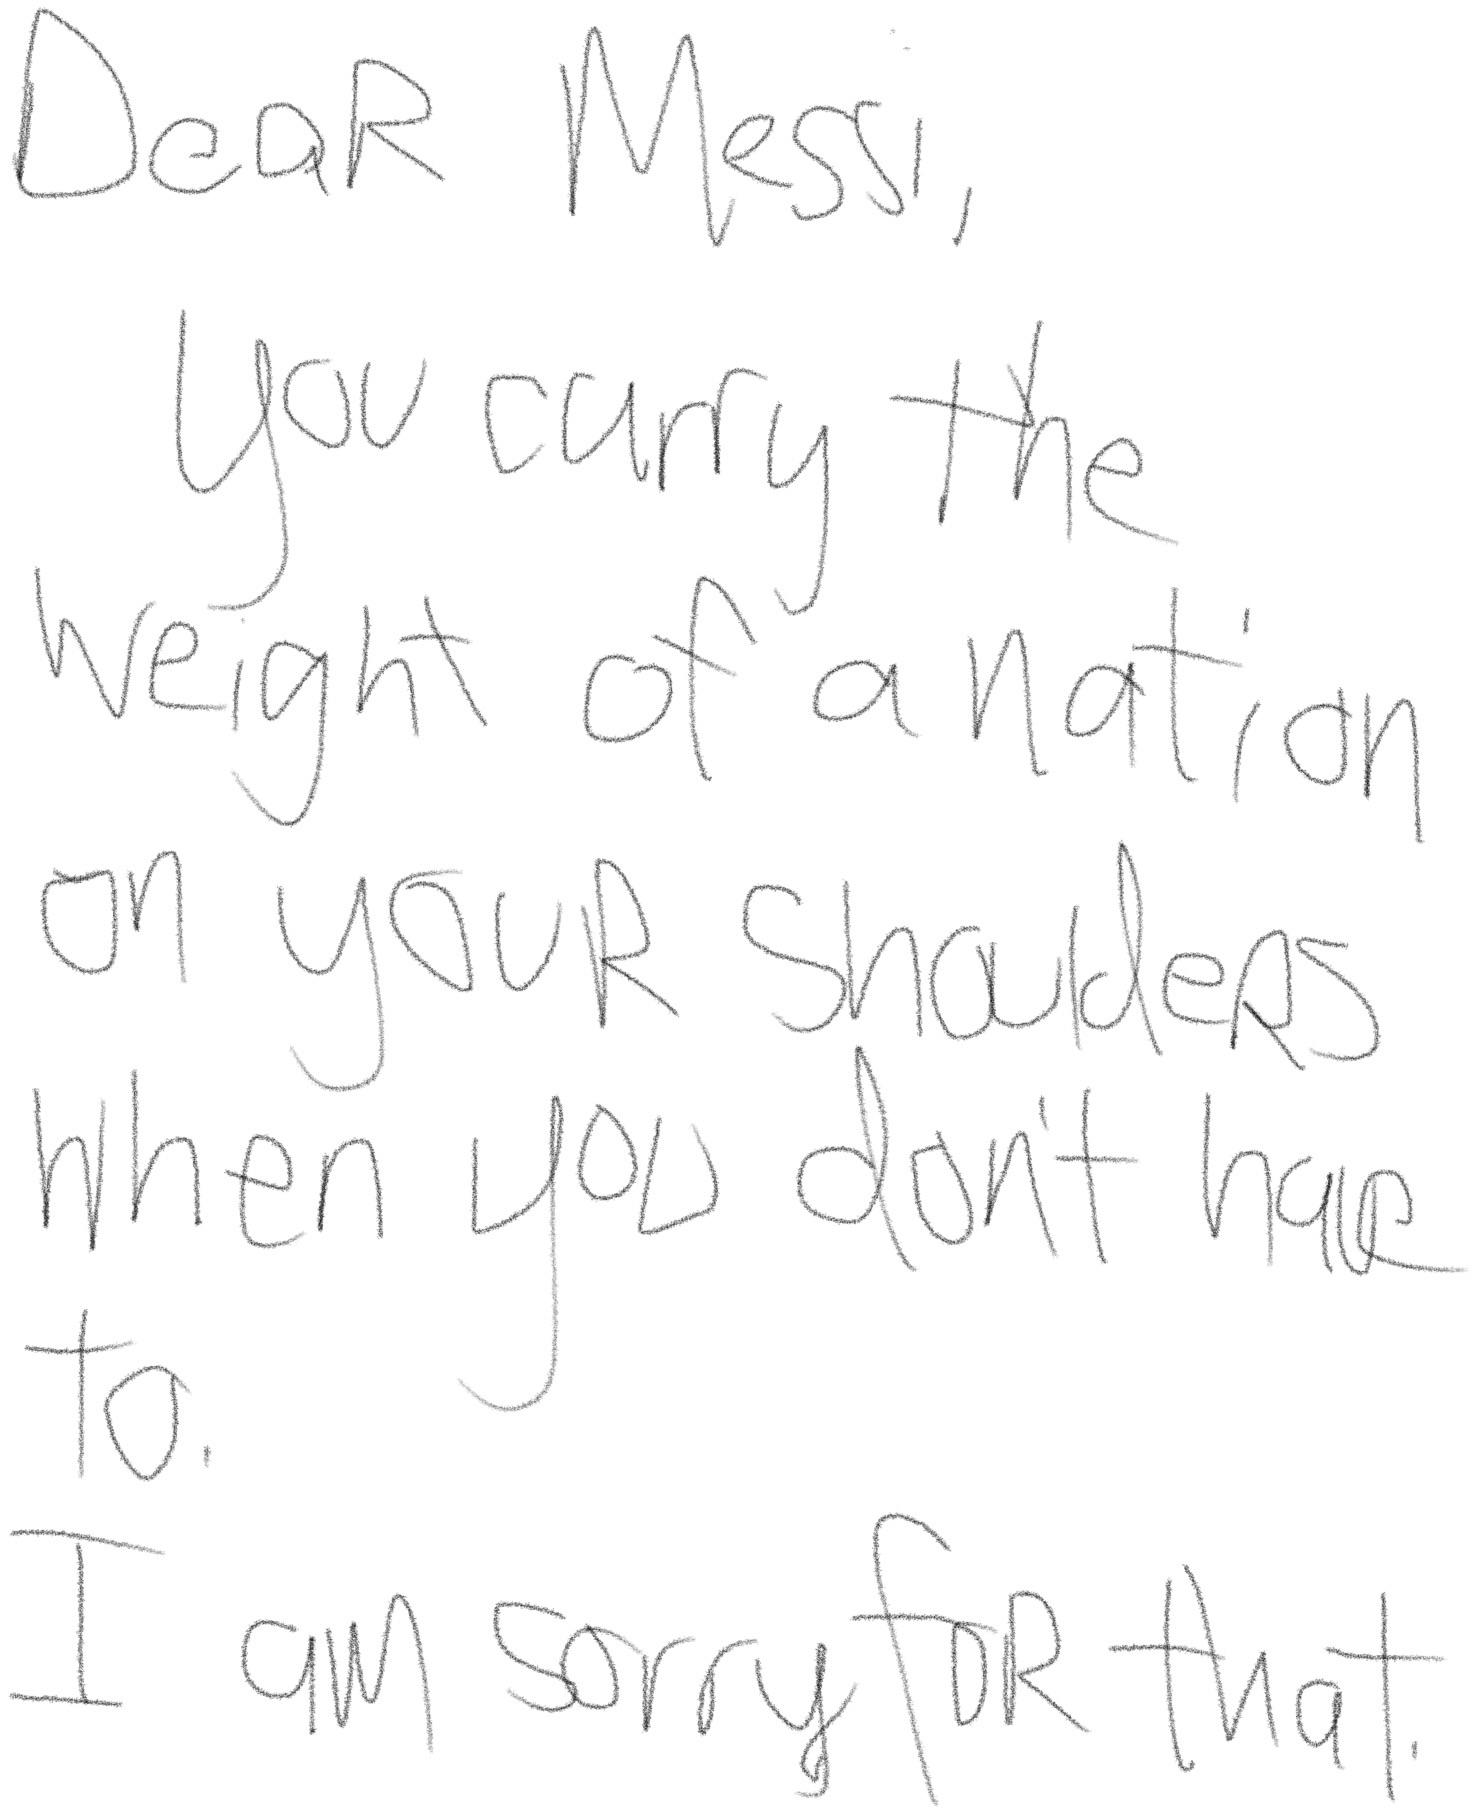 Dear Messi,
You carry the
weight of a nation
on your shaulders
when you don't have
to.
I am sorry for that.